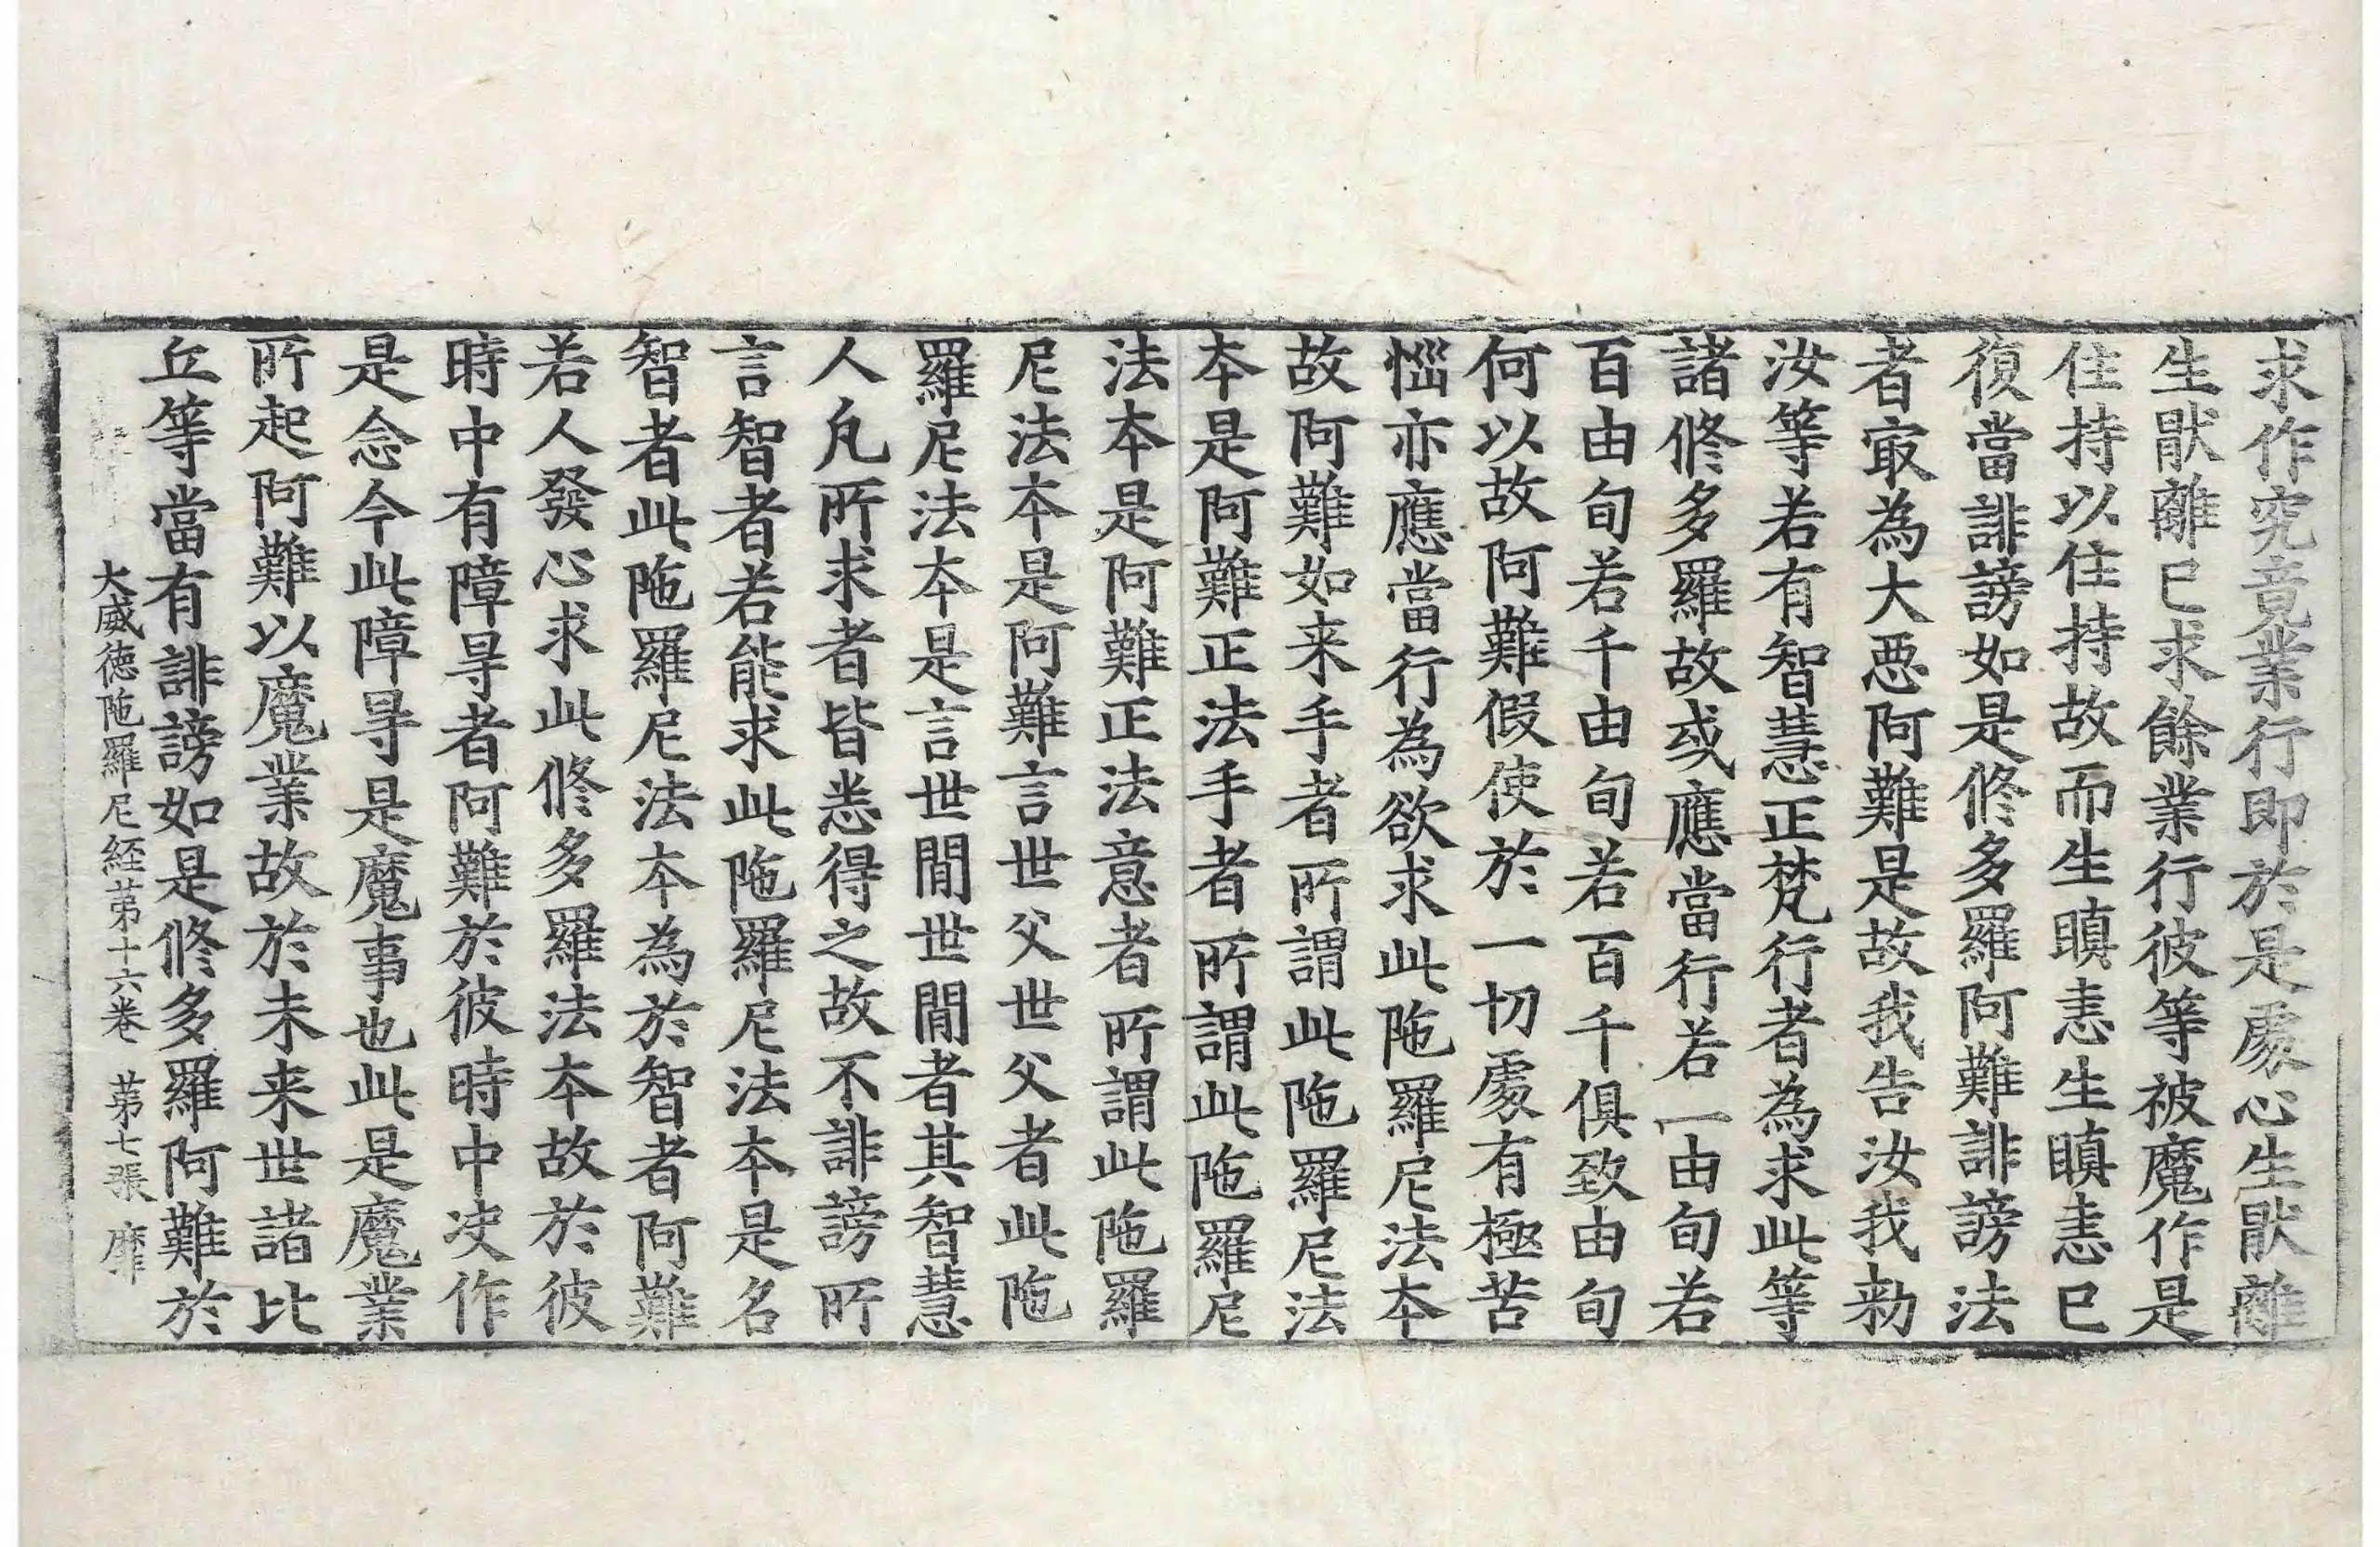 求作究竟業行即於是處心生猒離
生猒離已求餘業行彼等被魔作是
住持以住持故而生瞋恚生瞋恚已
復當誹謗如是修多羅阿難誹謗法
者㝡為大惡阿難是故我告汝我勑
汝等若有智慧正梵行者為求此等
諸修多羅故或應當行若一由旬若
百由旬若千由旬若百千俱致由旬
何以故阿難假使於一切處有極苦
惱亦應當行為欲求此陁羅尼法本
故阿難如来手者所謂此陁羅尼法
本是阿難正法手者所謂此陁羅尼
法本是阿難正法意者所謂此陁羅
尼法本是阿難言世父世父者此陁
羅尼法本是言世閒世閒者其智慧
人凡所求者皆悉得之故不誹謗所
言智者若能求此陁羅尼法本是名
智者此陁羅尼法本為於智者阿難
若人發心求此修多羅法本故於彼
時中有障㝵者阿難於彼時中决作
是念今此障㝵是魔事也此是魔業
所起阿難以魔業故於未来世諸比
丘等當有誹謗如是修多羅阿難於
大威徳陁羅尼経苐十六卷 苐七張 靡